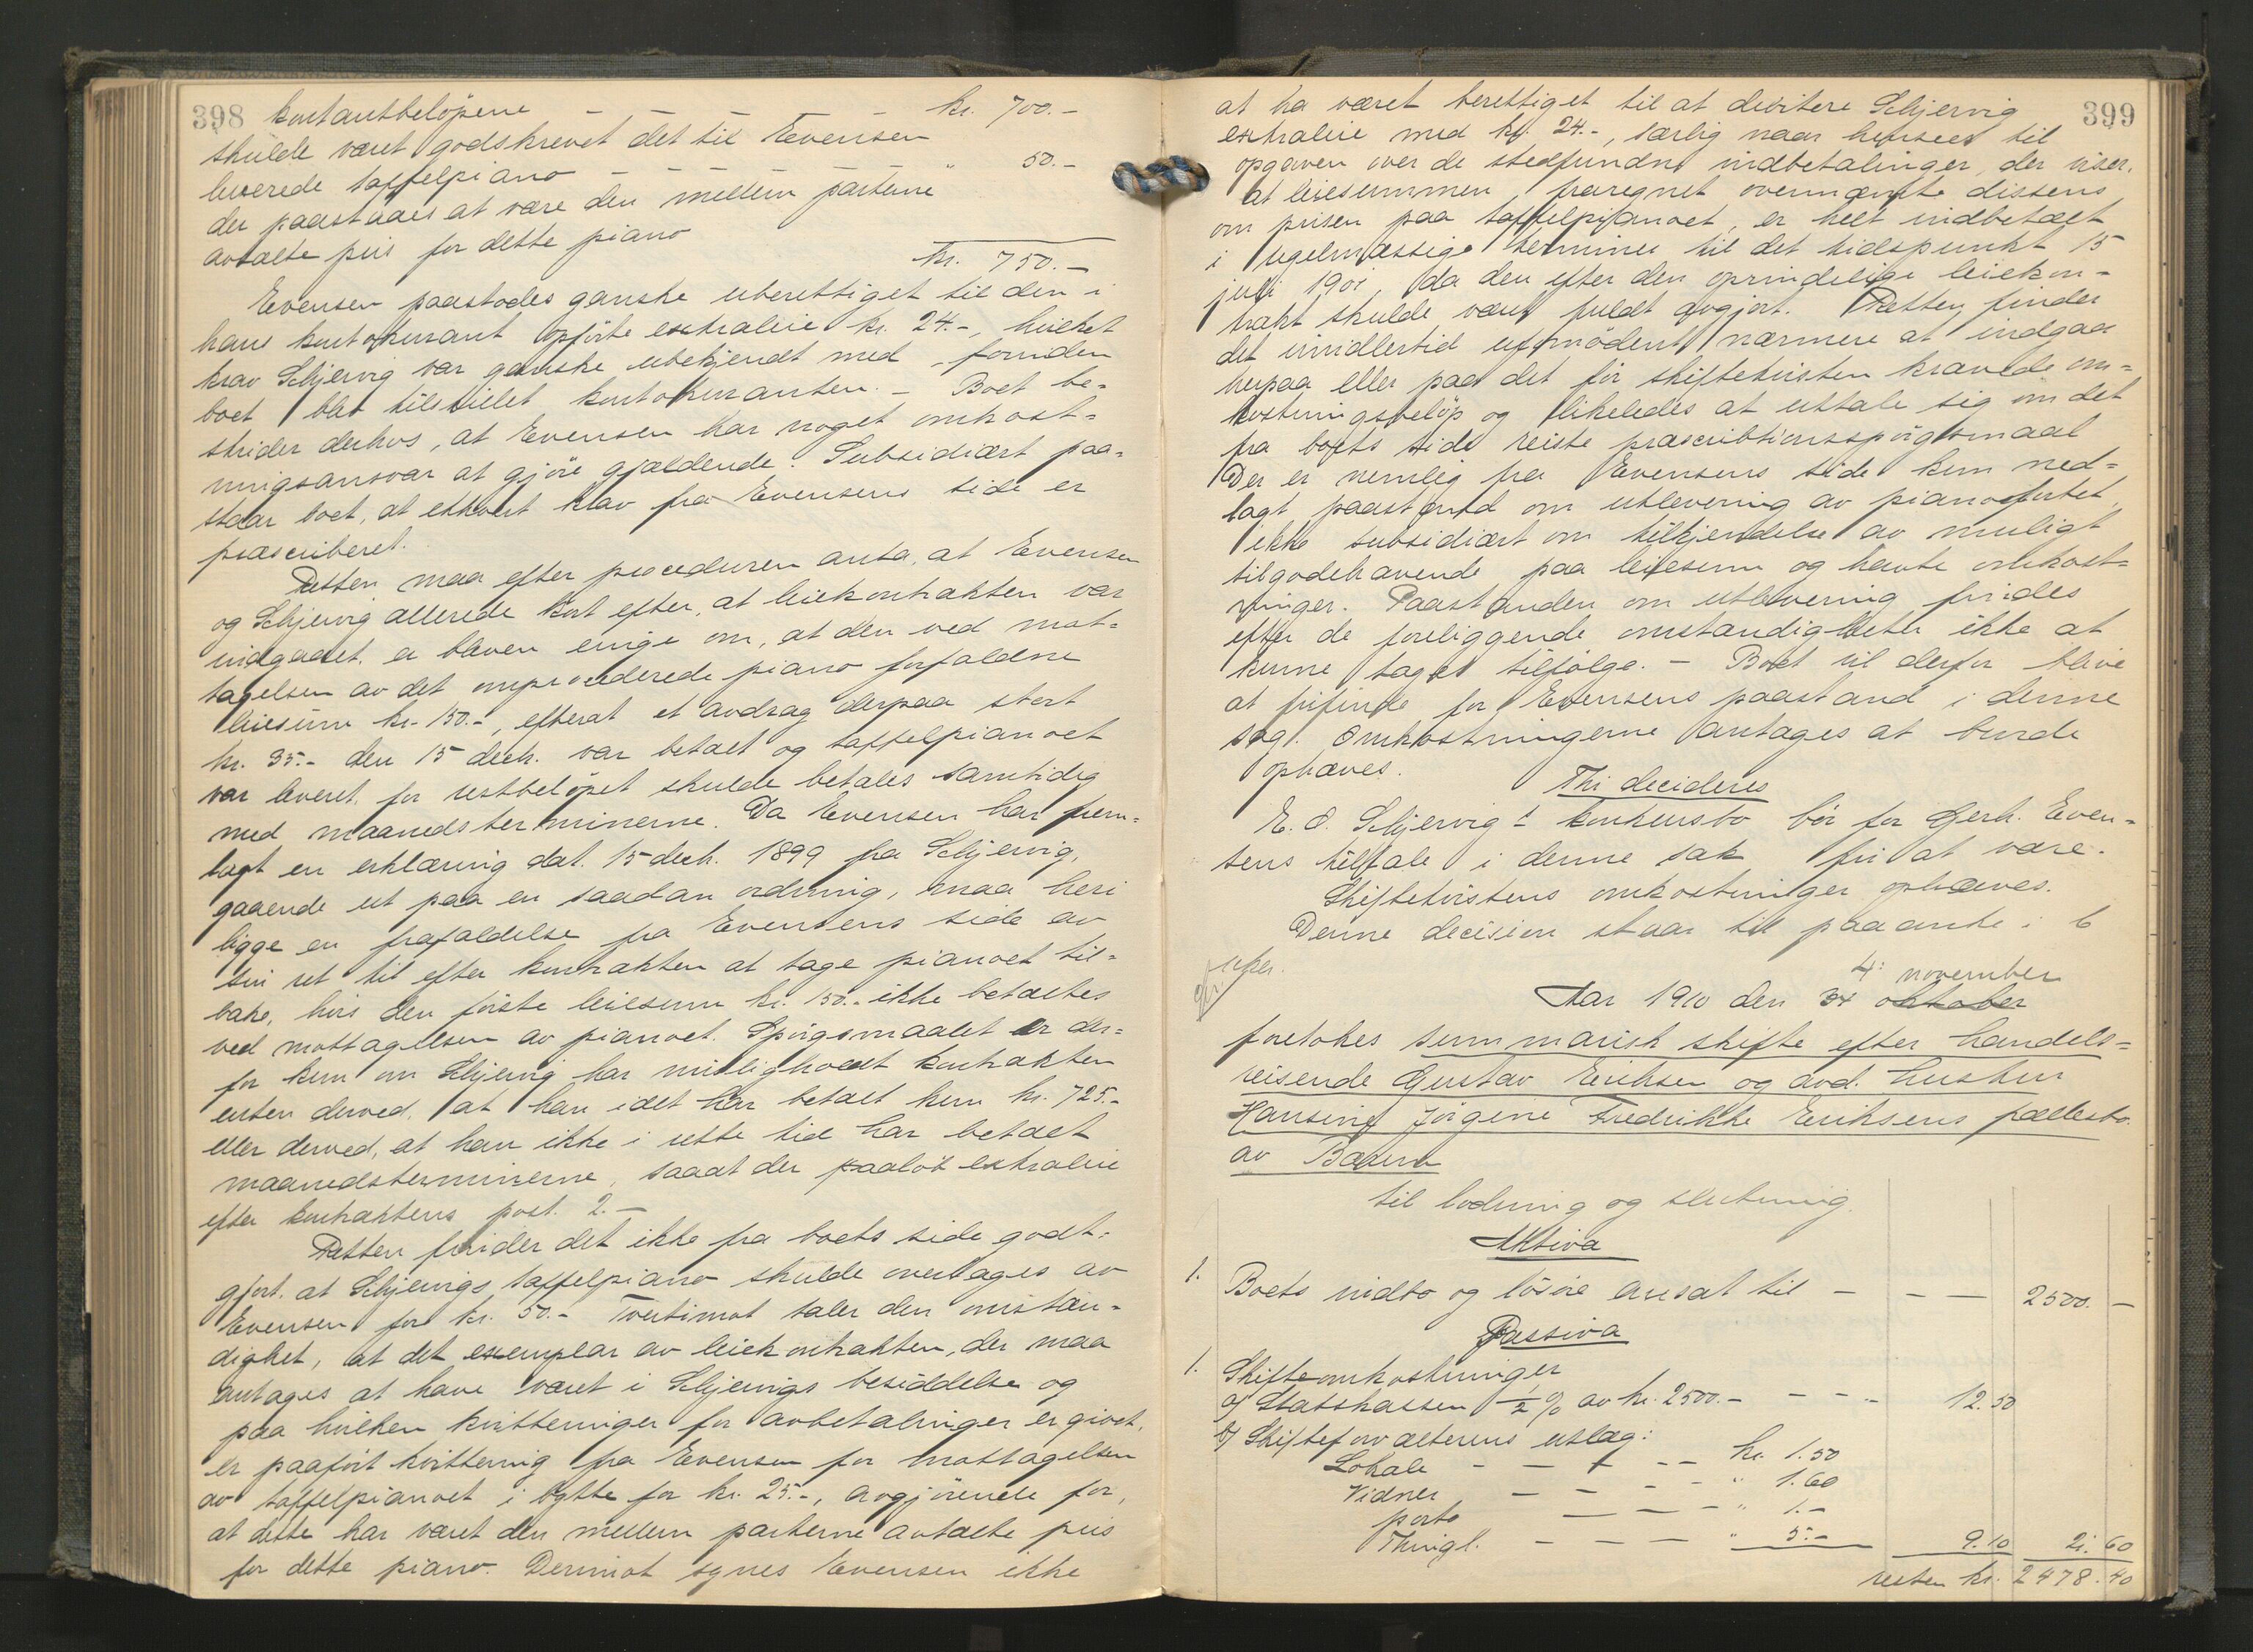 398 kontantbeløpene - - - - kr. 700.-
skulde været godskrevet det til Evensen
leverede taffelpiano - - - " 50.-
der paastaaes at være den mellem parterne
avtalte pris for dette piano
kr. 750.-
Evensen paastodes ganske uberettiget til den i
hans kontokurant opførte extraleie kr. 24.-, hvilket
krav Schjervig var ganske ubekjendt med, forinden
boet blev tilstillet kontokuranten. - Boet be-
strider derhos, at Evensen har noget omkost-
ningsansvar at gjøre gjældende. Subsidiært paa-
staar boet, at ethvert krav fra Evensens side er
præscriberet.
Retten maa efter proceduren anta, at Evensen
og Schjervig allerede kort efter, at leiekontrakten var
indgaaet, er bleven enige om, at den ved mot-
tagelsen av det omprocederede piano forfaldne
leiesum kr. 150.-, efterat et avdrag derpaa stort
kr. 35.- den 15 decbr. var betalt og taffelpianoet
var leveret, for restbeløpet skulde betales samtidig
med maanedsterminerne. Da Evensen har frem-
lagt en erklæring dat. 15 decbr. 1899 fra Schjervig,
gaaende ut paa en saadan ordning, maa heri
ligge en frafaldelse fra Evensens side av
sin ret til efter kontrakten at tage pianoet til-
bake, hvis den første leiesum kr. 150.- ikke betaltes
ved mottagelsen av pianoet. Spørgsmaalet er der-
for kun om Schjervig har misligholdt kontrakten
enten derved, at han idet har betalt kun kr. 725.-
eller derved, at han ikke i rette tid har betalt
maanedsterminerne, saaat der paaløb extraleie
efter kontraktens post. 2.-
Retten finder det ikke fra boets side godt-
gjort, at Schjervigs taffelpiano skulde overtages av
Evensen for kr. 50.- Tvertimot taler den omstæn-
dighet, at det exemplar av leiekontrakten, der maa
antages at have været i Schjervigs besiddelse og
paa hvilken kvitteringer for avbetalinger er givet,
er paaført kvittering fra Evensen for mottagelsen
av taffelpianoet i bytte for kr. 25.-, avgjørende for,
at dette har været den mellem parterne avtalte pris
for dette piano. Derimot synes Evensen ikke
399
at ha været berettiget til at debitere Schjervig
extraleie med kr. 24.-, særlig naar hensees til
opgaven over de stedfundne indbetalinger, der viser,
at leiesummen, fraregnet ovennævnte dissens
om prisen paa taffelpianoet, er helt indbetalt
i regelmæssige terminer til det tidspunkt 15
juli 1901, da den efter den oprindelige leiekon-
trakt skulde været fuldt avgjort. Retten finder
det imidlertid ufornødent nærmere at indgaa
herpaa eller paa det før skiftetvisten krævede om-
kostningsbeløp og likeledes at uttale sig om det
fra boets side reiste præscribtionsspørgsmaal
Der er nemlig fra Evensens side kun ned-
lagt paastand om utlevering av pianofortet,
ikke subsidiært om tilkjendelse av muligt
tilgodehavende paa leiesum og hævte omkost-
ninger. Paastanden om utlevering findes
efter de foreliggende omstændigheter ikke at
kunne tages tilfølge. - Boet vil derfor blive
at frifinde for Evensens paastand i denne
sag. Omkostningerne antages at burde
ophæves.
Thi decideres
E. O. Schjervigs konkursbo bør for Gerh. Even-
sens tiltale i denne sak fri at være.
Skiftetvistens omkostninger ophæves.
Denne decision staar til paaanke i 6
4. november
Aar 1910 den 31 oktober
foretokes summarisk skifte efter handels-
reisende Gustav Eriksen og avd. hustru
Hansine Jørgine Fredrikke Eriksens fællesbo
av Bærum
til lodning og slutning.
Aktiva
1. Boets indbo og løsøre ansat til - - - 2500. -
Passiva
1. Skifteomkostninger
a) Statskassen 1/2 % av kr. 2500.- - - - 12.50
b) Skifteforvalterens utlæg:
Lokale - - - - - kr. 1.50
Vidner - - - - " 1.60
porto - - - - " 1.-
Thingl. - - - - " 5.- 9.10 21.60
resten kr. 2478.40